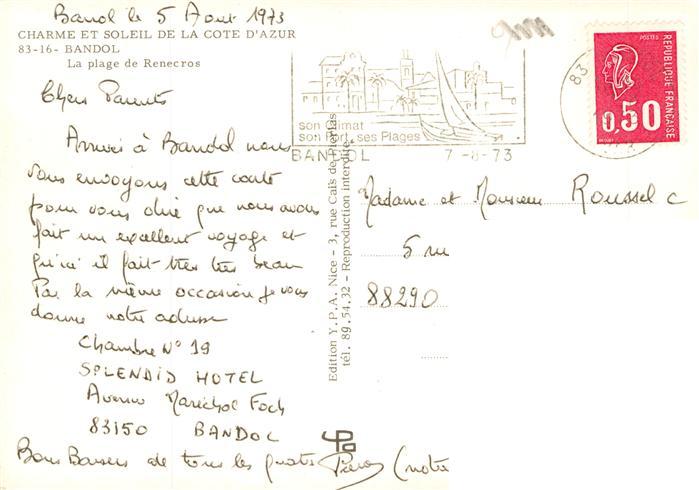 Bandol le 5 Aout 1973
CHARME ET SOLEIL DE LA COTE D'AZUR
83-16- BANDOL
La plage de Renecros
Chers Parents
Arrivés à Bandol nous
vous envoyons cette carte
pour vous dire que nous avons
fait un excellent voyage et
qu'ici il fait très très beau
Par la même occasion je vous
donne notre adresse
Chambre N° 19
SPLENDID HOTEL
Avenue Maréchal Foch
83150 BANDOL
Bons Baisers de tous les quatre
(notre
son climat
son port, ses Plages
BANDOL 7-8-73
83
POSTES
REPUBLIQUE FRANÇAISE
0,50
Madame et Monsieur Roussel c
5 rue
88290
Edition Y.P.A. Nice - 3, rue Caïs de Pierlas
tél. 89.54.32 - Reproduction interdite.